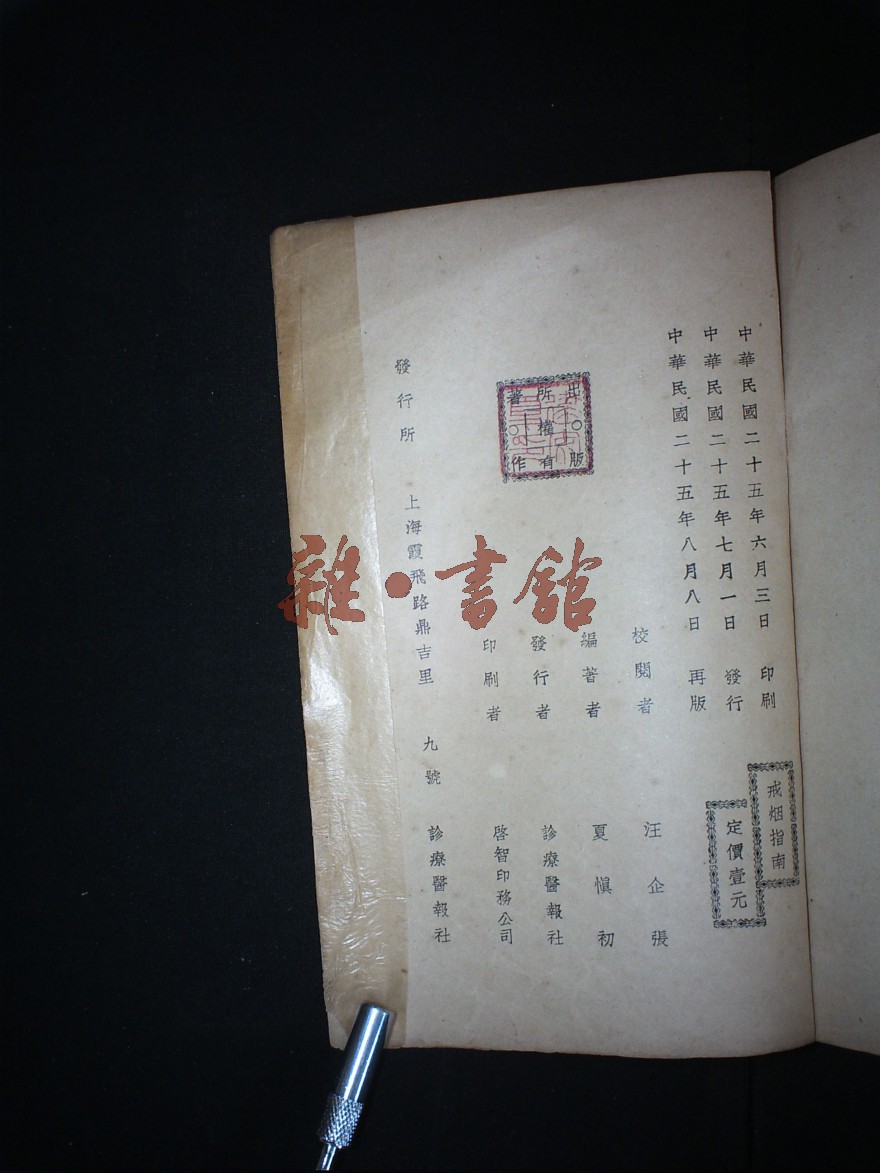 中華民國二十五年六月三日 印刷
中華民國二十五年七月一日 發行
中華民國二十五年八月八日 再版
戒烟指南
定價壹元
校閱者 汪企張
編著者 夏愼初
發行者 診療醫報社
印刷者 啓智印務公司
出版
所權有
著作
發行所 上海霞飛路鼎吉里 九號 診療醫報社
雜·書館